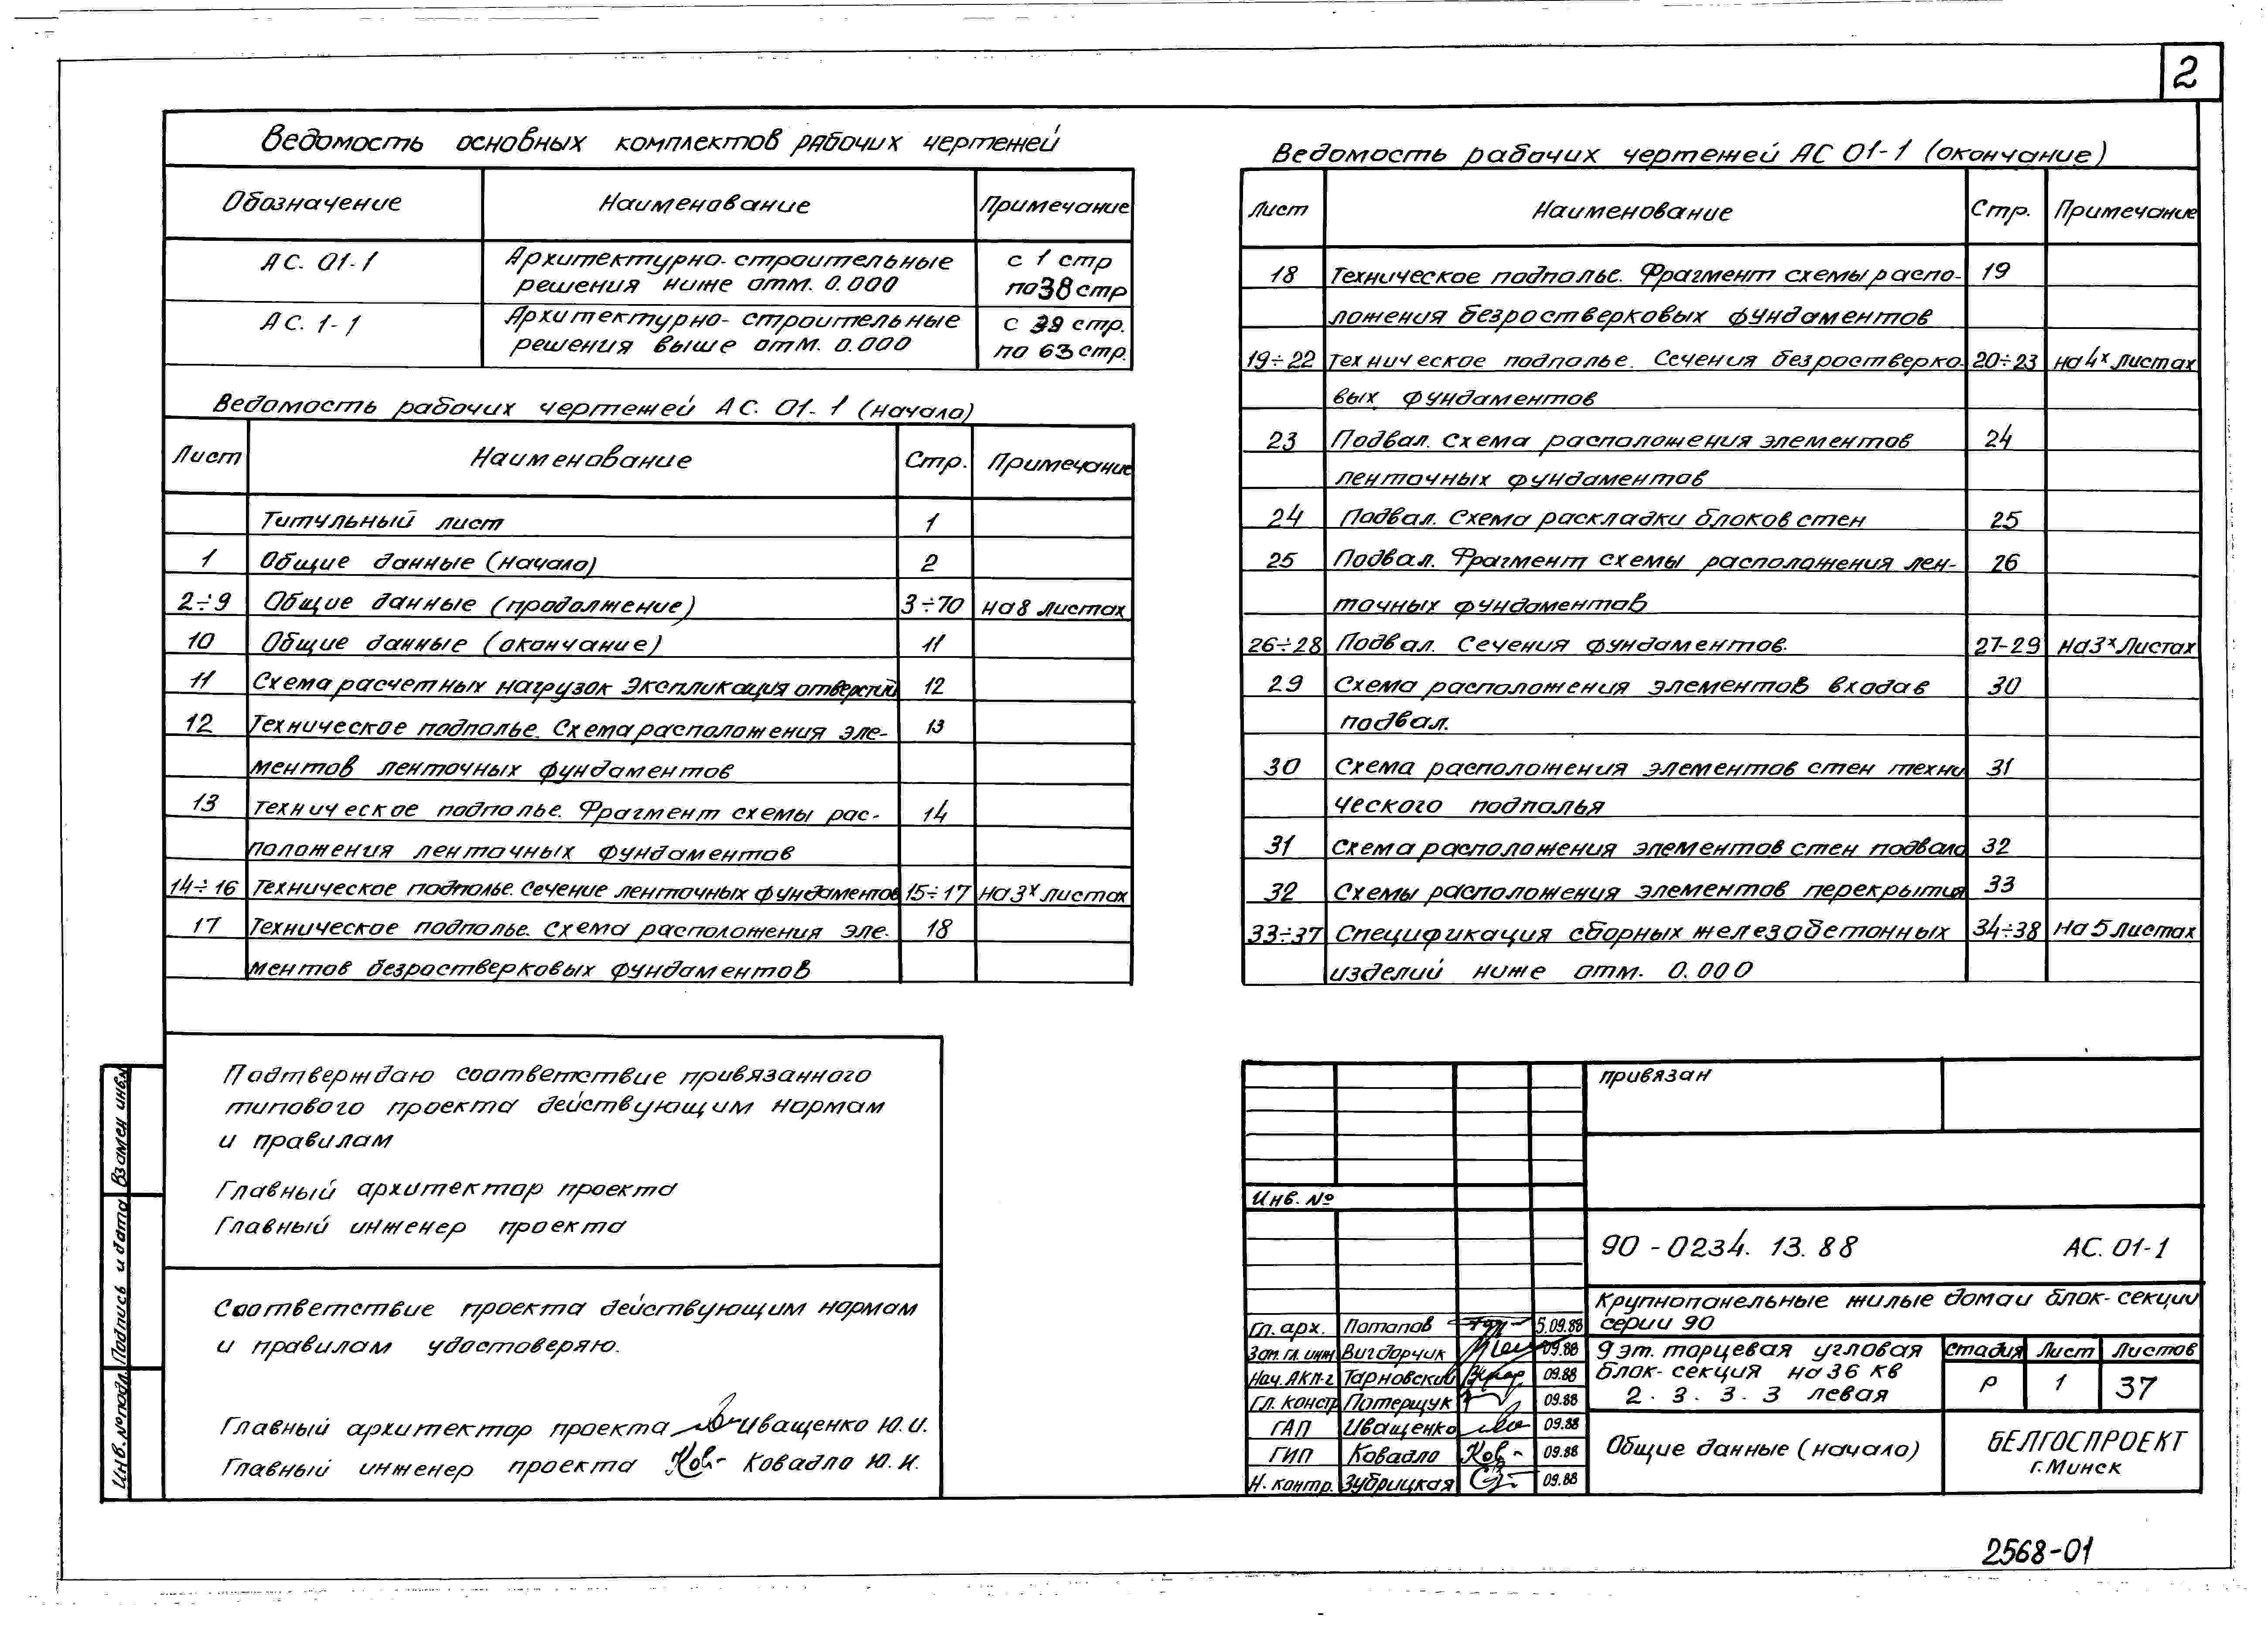 2
Ведомость основных комплектов рабочих чертежей
Обозначение Наименование Примечание
АС. 01-1 Архитектурно-строительные решения ниже отм. 0.000 с 1 стр по 38 стр
АС. 1-1 Архитектурно-строительные решения выше отм. 0.000 с 39 стр. по 63 стр.
Ведомость рабочих чертежей АС. 01-1 (начало)
Лист Наименование Стр. Примечание
Титульный лист 1
1 Общие данные (начало) 2
2÷9 Общие данные (продолжение) 3÷10 на 8 листах
10 Общие данные (окончание) 11
11 Схема расчетных нагрузок Экспликация отверстий 12
12 Техническое подполье. Схема расположения эле- 13
ментов ленточных фундаментов
13 Техническое подполье. Фрагмент схемы рас- 14
положения ленточных фундаментов
14÷16 Техническое подполье. Сечение ленточных фундаментов 15÷17 на 3х листах
17 Техническое подполье. Схема расположения эле- 18
ментов безростверковых фундаментов
Ведомость рабочих чертежей АС 01-1 (окончание)
Лист Наименование Стр. Примечание
18 Техническое подполье. Фрагмент схемы распо- 19
ложения безростверковых фундаментов
19÷22 Техническое подполье. Сечения безростверко- 20÷23 на 4х листах
вых фундаментов
23 Подвал. Схема расположения элементов 24
ленточных фундаментов
24 Подвал. Схема раскладки блоков стен 25
25 Подвал. Фрагмент схемы расположения лен- 26
точных фундаментов
26÷28 Подвал. Сечения фундаментов. 27-29 на 3х листах
29 Схема расположения элементов входа в 30
подвал.
30 Схема расположения элементов стен техни 31
ческого подполья
31 Схема расположения элементов стен подвала 32
32 Схемы расположения элементов перекрытия 33
33÷37 Спецификация сборных железобетонных 34÷38 на 5 листах
изделий ниже отм. 0.000
Подтверждаю соответствие привязанного
типового проекта действующим нормам
и правилам
Главный архитектор проекта
Главный инженер проекта
Соответствие проекта действующим нормам
и правилам удостоверяю.
Главный архитектор проекта Иващенко Ю.И.
Главный инженер проекта Ков- Ковадло Ю.И.
Взамен инв.№
Подпись и дата
Инв.№подл.
привязан
Инв. №
90-0234. 13. 88 АС. 01-1
Крупнопанельные жилые дома и блок-секции
серии 90
Гл. арх. Потапов 5.09.88
Зам. гл. инж Вигдорчик 09.88
Нач. АКП-2 Тарновский 09.88
Гл. констр Потерщук 09.88
ГАП Иващенко 09.88
ГИП Ковадло Ков- 09.88
Н. контр. Зубрицкая 09.88
9 эт. торцевая угловая
блок-секция на 36 кв
2. 3. 3. 3 левая
стадия Лист Листов
Р 1 37
Общие данные (начало)
БЕЛГОСПРОЕКТ
г. Минск
2568-01